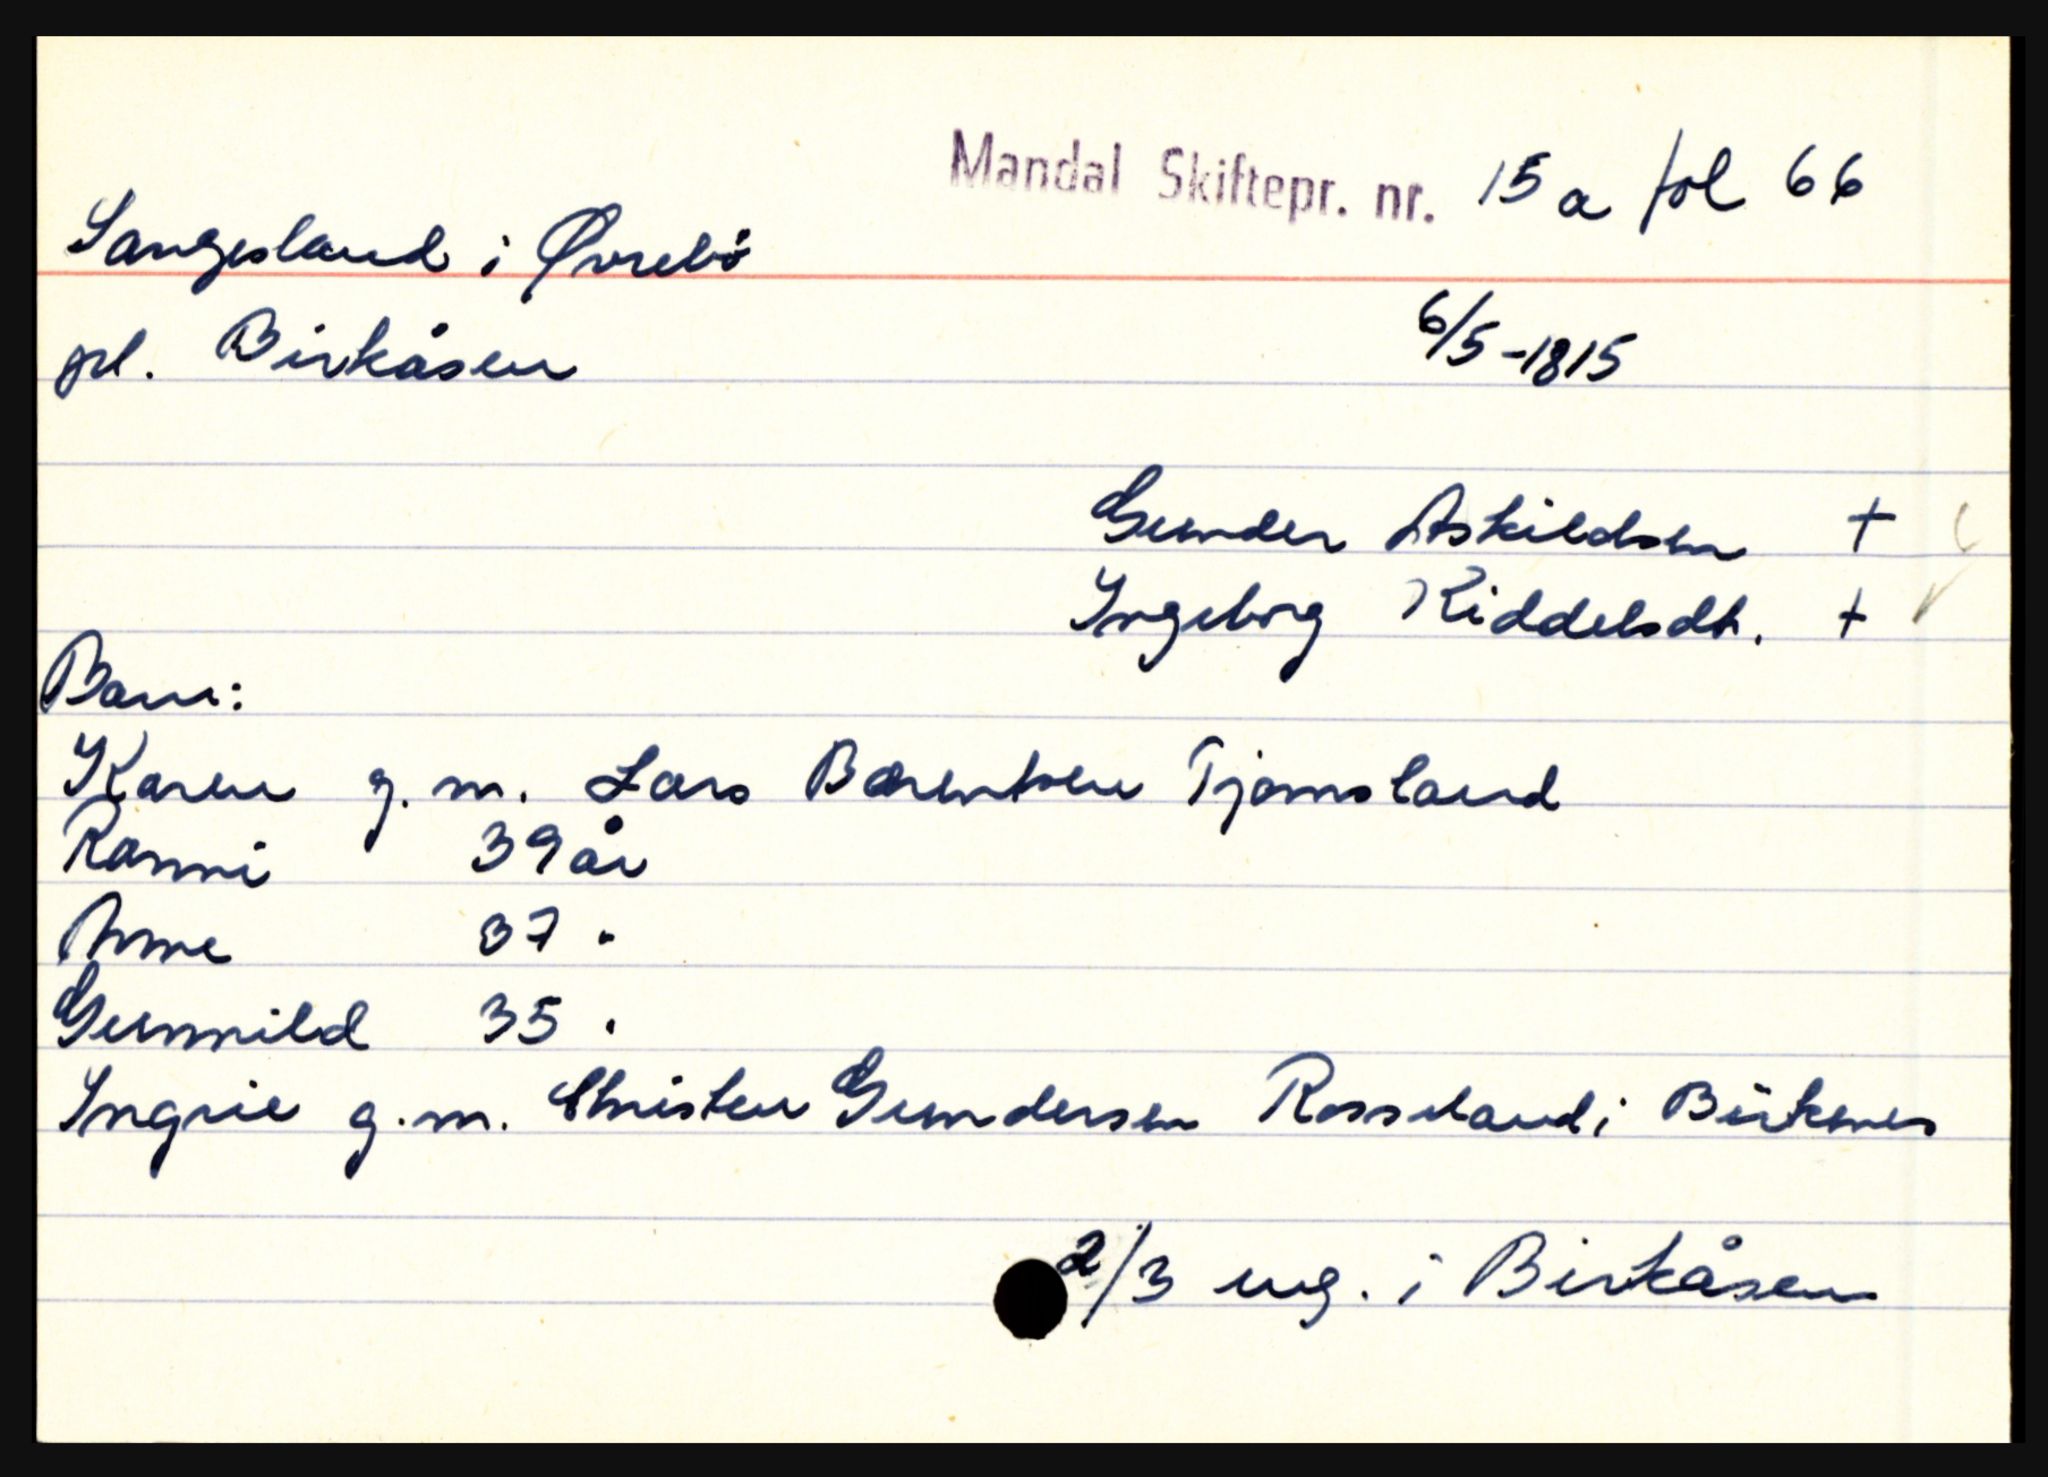 Mandal Skiftepr. nr. 15 a fol 66
Sangesland i Øvrebö
pl. Birkåsen
6/5-1815
Gunder Askildsen +
Ingeborg Kiddelsdt. +
Barn:
Karen g. m. Lars Bærentsen Tjomsland
Ranni 39 år
Anne 37 "
Gunnild 35 "
Ingrie g. m. Christen Gundersen Rosseland i Birkenes
2/3 ug. i Birkåsen